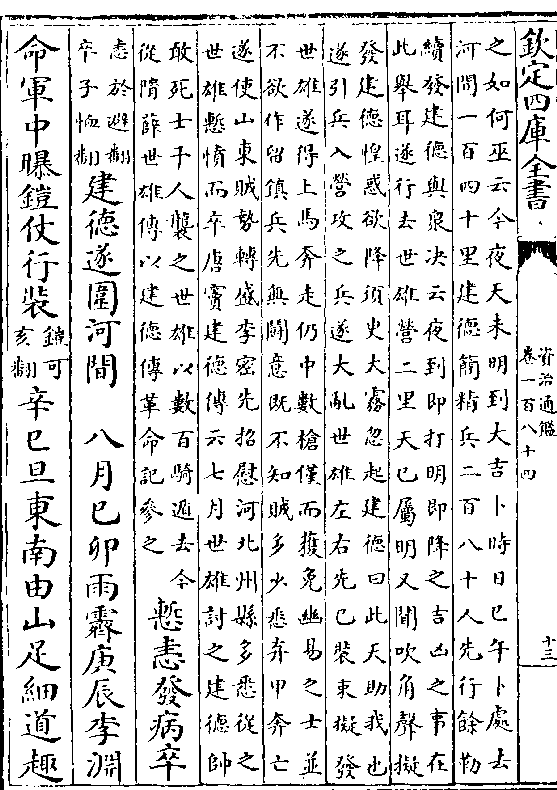 欽定四庫全書
資治通鑑
卷一百八十四
十三
之如何巫云今夜天未明到大吉卜時日已午卜處去
河間一百四十里建德簡精兵二百八十人先行餘勒
續發建德與衆决云夜到即打明即降之吉凶之事在
此舉耳遂行去世雄營二里天已屬明又聞吹角聲擬
發建德惶惑欲降須㬰大霧忽起建德曰此天助我也
遂引兵入營攻之兵遂大亂世雄左右先已裝束擬發
世雄遂得上馬奔走仍中數槍僅而獲免幽易之士並
不欲作留鎮兵先無鬬意既不知賊多少悉弃甲奔亡
遂使山東賊勢轉盛李密先招慰河北州縣多悉從之
世雄慙憤而卒唐竇建德傳云七月世雄討之建德帥
敢死士千人襲之世雄以數百騎遁去今
從隋薛世雄傳以建德傳革命記參之
慙恚發病卒
恚於避翻
卒子恤翻
建德遂圍河間　八月已卯雨霽庚辰李淵
命軍中曝鎧仗行裝
鎧可
亥翻
辛巳旦東南由山足細道趣